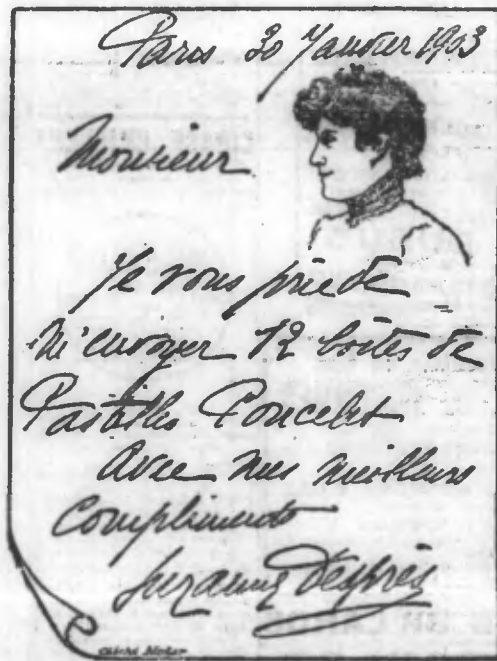 Paris 30 Janvier 1903
Monsieur
Je vous prie de
m'envoyer 12 boîtes de
Pastilles Poncelet
Avec mes meilleurs
Compliments
Suzanne Després
Cliché Nadar